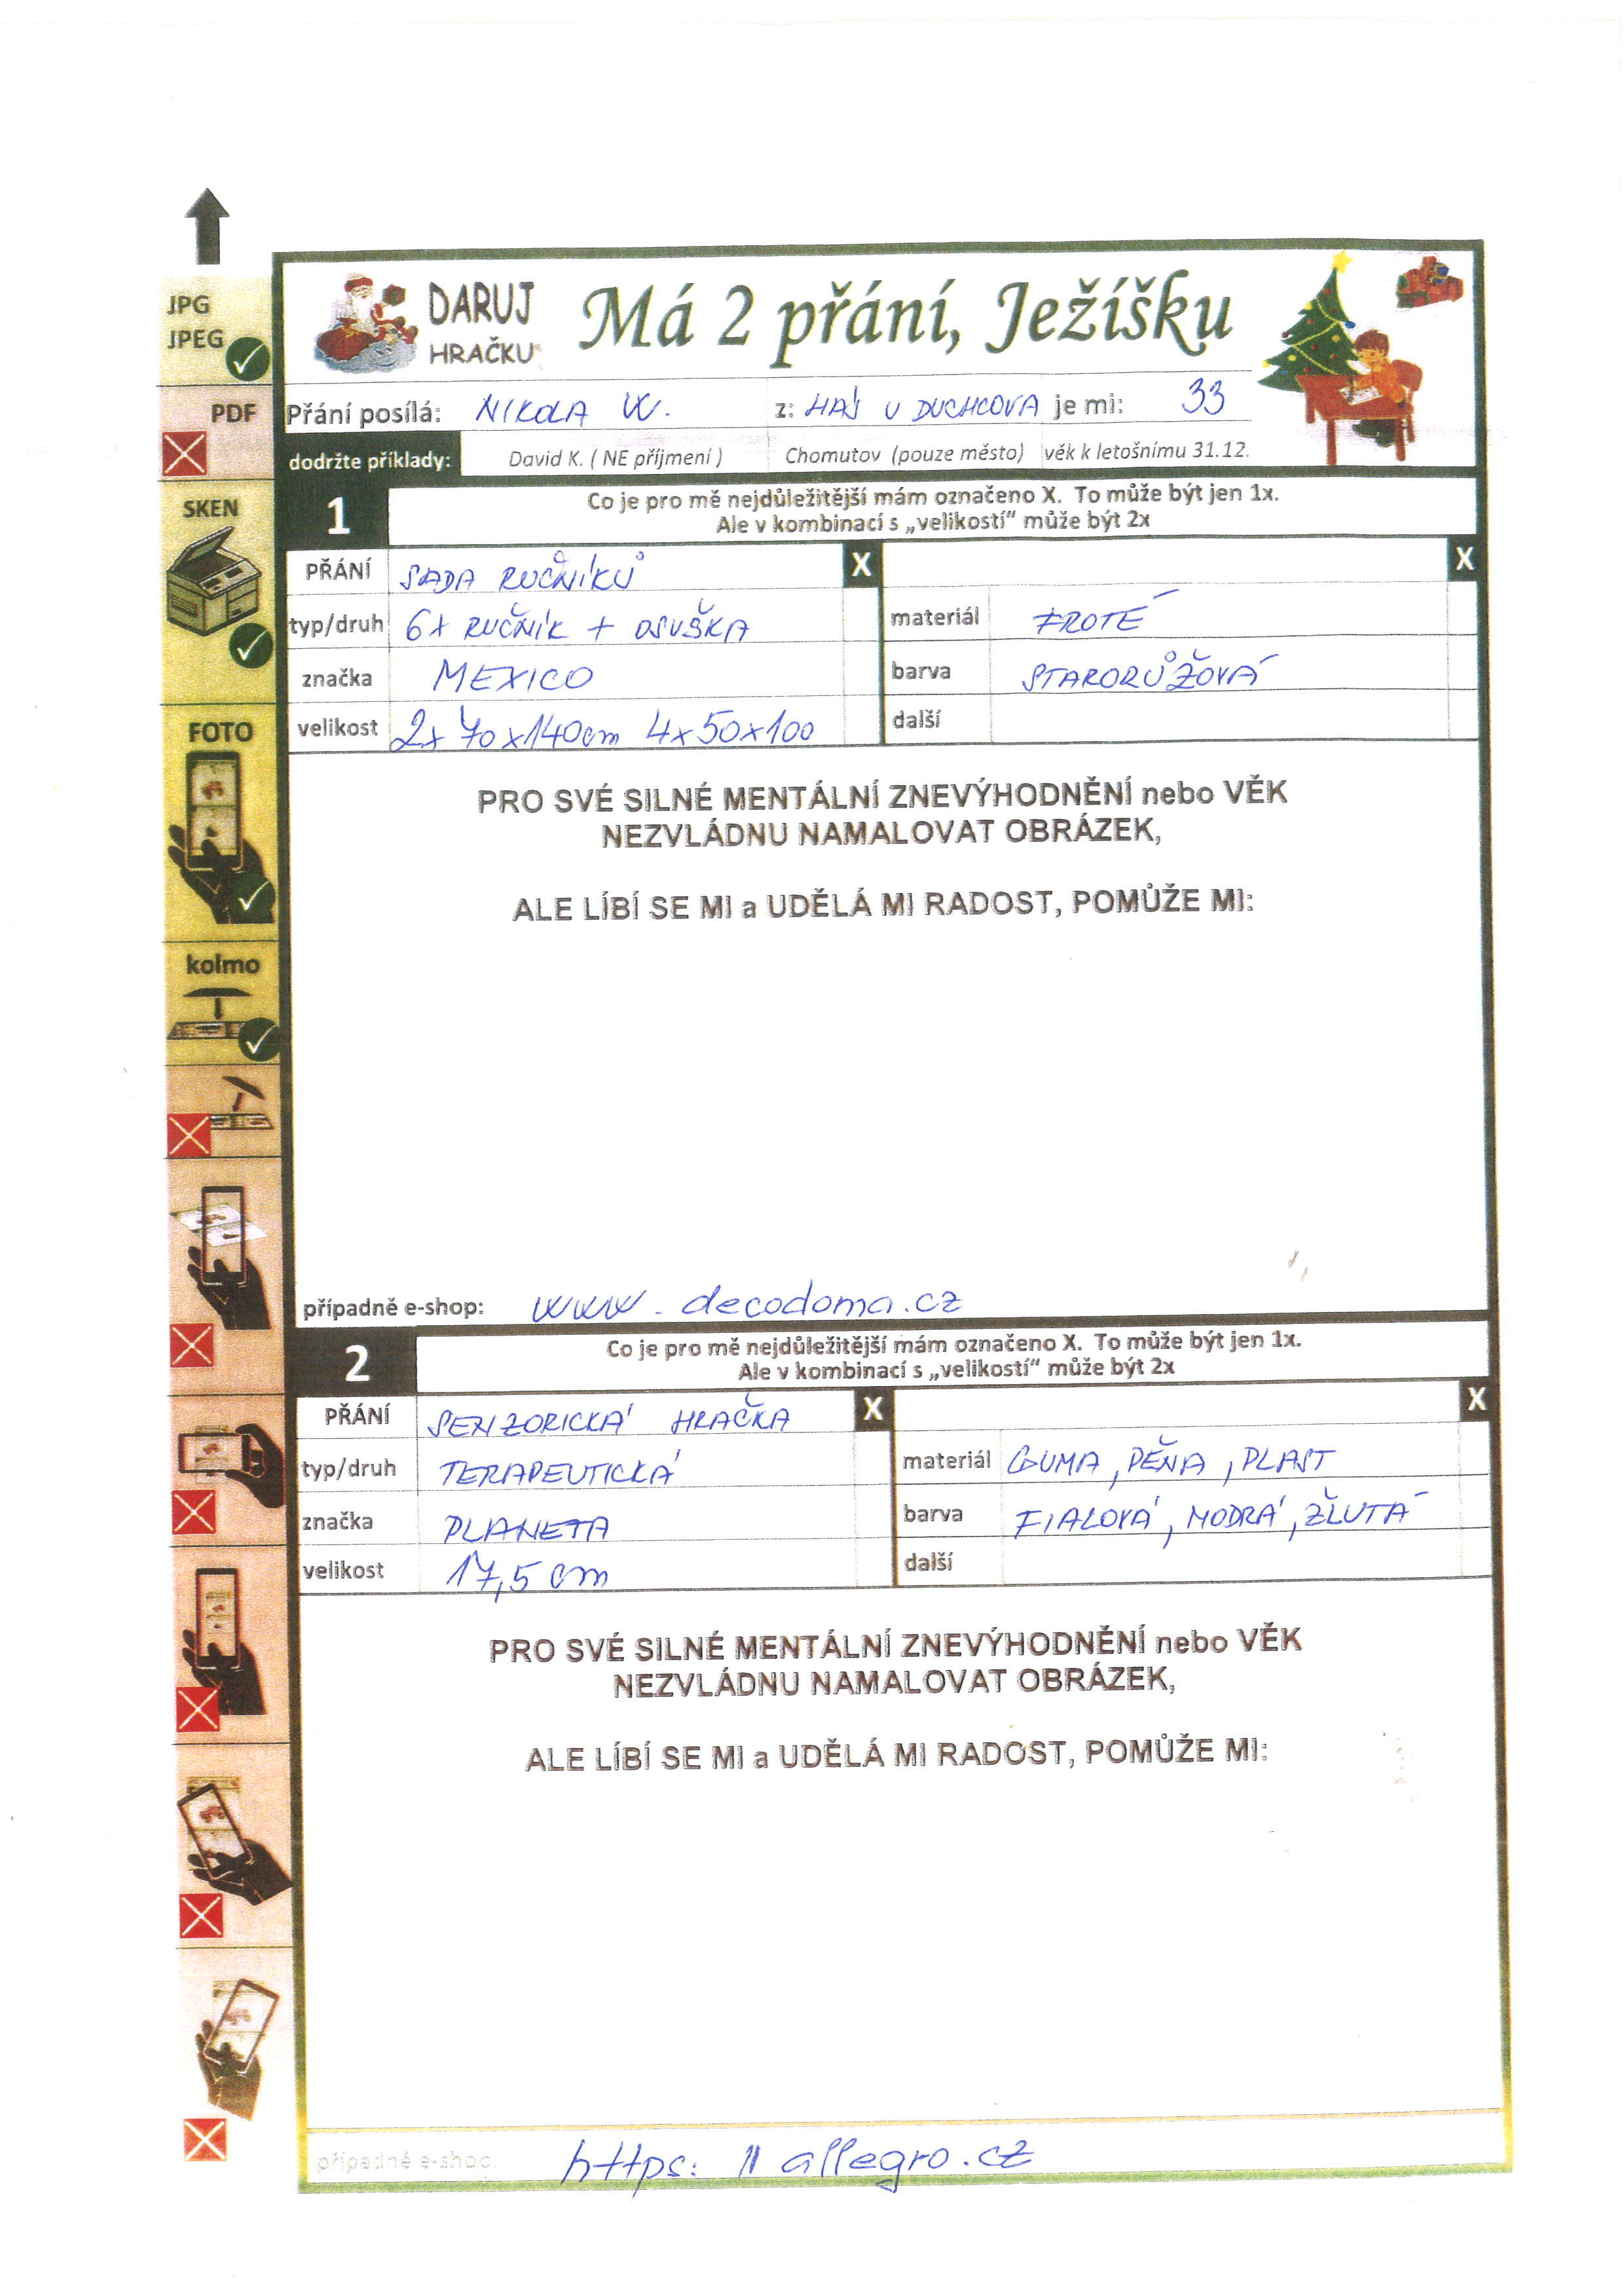 JPG
JPEG
PDF
SKEN
FOTO
kolmo
DARUJ
HRAČKU
Má 2 přání, Ježíšku
Přání posílá: NIKOLA W. z: HÁJ U DUCHCOVA je mi: 33
dodržte příklady: David K. ( NE příjmení ) Chomutov (pouze město) věk k letošnímu 31.12.
1
Co je pro mě nejdůležitější mám označeno X. To může být jen 1x.
Ale v kombinací s „velikostí" může být 2x
PŘÁNÍ SADA RUČNÍKŮ X X
typ/druh 6x RUČNÍK + OSUŠKA materiál FROTÉ
značka MEXICO barva STARORŮŽOVÁ
velikost 2x 70x140cm 4x50x100 další
PRO SVÉ SILNÉ MENTÁLNÍ ZNEVÝHODNĚNÍ nebo VĚK
NEZVLÁDNU NAMALOVAT OBRÁZEK,
ALE LÍBÍ SE MI a UDĚLÁ MI RADOST, POMŮŽE MI:
případně e-shop: www.decodoma.cz
2
Co je pro mě nejdůležitější mám označeno X. To může být jen 1x.
Ale v kombinací s „velikostí" může být 2x
PŘÁNÍ SENZORICKÁ HRAČKA X X
typ/druh TERAPEUTICKÁ materiál GUMA, PĚNA, PLAST
značka PLANETA barva FIALOVÁ, MODRÁ, ŽLUTÁ
velikost 17,5 cm další
PRO SVÉ SILNÉ MENTÁLNÍ ZNEVÝHODNĚNÍ nebo VĚK
NEZVLÁDNU NAMALOVAT OBRÁZEK,
ALE LÍBÍ SE MI a UDĚLÁ MI RADOST, POMŮŽE MI:
případně e-shop: https: // allegro.cz